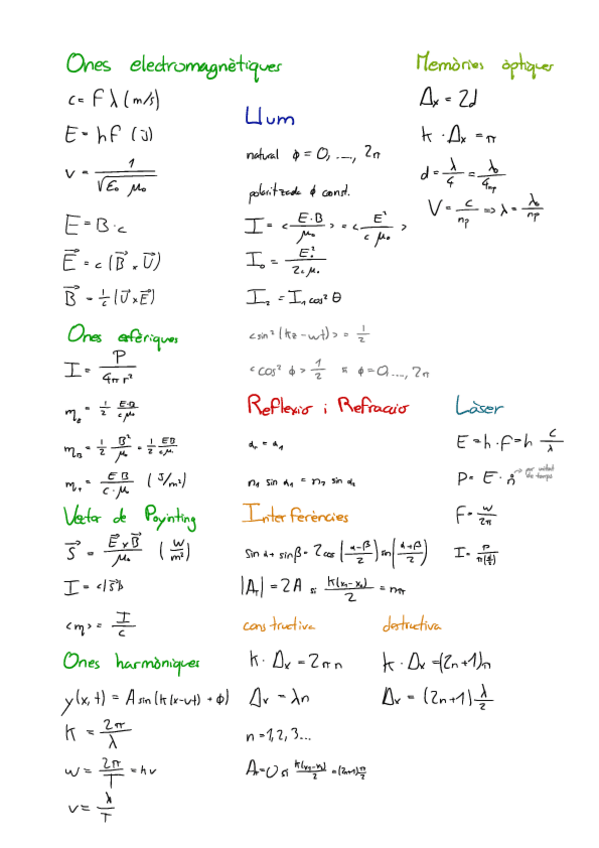 Ones electromagnètiques
c = f λ (m/s)
E = hf (J)
v = 1 / √ε₀ μ₀
E = B · c
E⃗ = c (B⃗ × U⃗)
B⃗ = 1/c (U⃗ × E⃗)
Ones esfèriques
I = P / 4πr²
m_B = 1/2 B²/μ₀ = 1/2 EB/cμ₀
EB / c·μ₀ (J/m³)
Vector de Poynting
S⃗ = E⃗ × B⃗ / μ₀ (W/m²)
I = <|S⃗|>
<m> = I/c
Ones harmòniques
y(x, t) = A sin (k(x-vt) + φ)
k = 2π/λ
w = 2π/T = kv
v = λ/T
Llum
natural φ = 0, ..., 2π
polaritzada φ const.
I = <E·B/μ₀> = <E²/cμ₀>
I₀ = E₀²/2cμ₀
I₂ = I₁ cos² θ
<sin² (kz - wt)> = 1/2
<cos² φ> 1/2 si φ = 0, ..., 2π
Reflexio i Refraccio
n₁ sin α₁ = n₂ sin α₂
Interferències
sin α + sin β = 2 cos (α-β/2) sin (α+β/2)
|A₁| = 2A si k(x₁-x₂)/2 = nπ
constructiva
k · Δx = 2πn
Δx = λn
n = 1, 2, 3...
destructiva
k · Δx = (2n+1)π
Δx = (2n+1) λ/2
Memòries òptiques
Δx = 2d
k · Δx = π
d = λ/4 = λ₀/4np
V = c/np => λ = λ₀/np
Làser
E = h · f = h c/λ
P = E · ṅ
f = w/2π